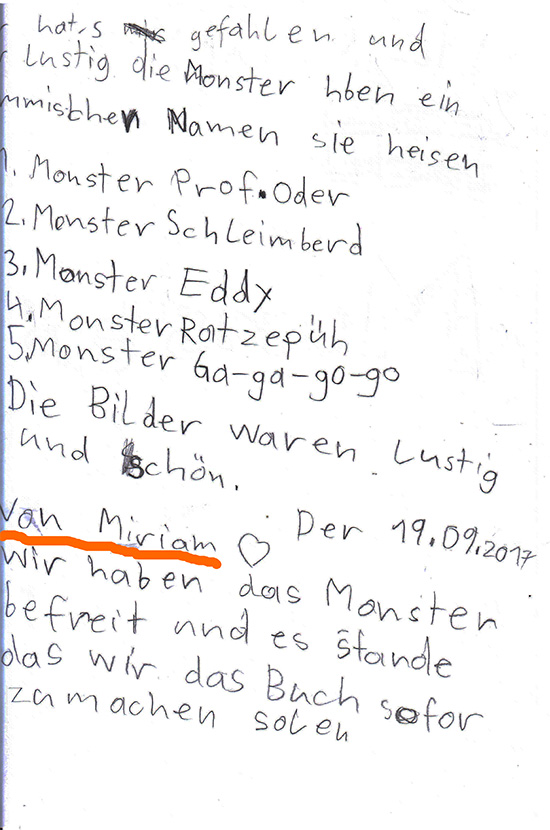 hat,s gefahlen und
Lustig die Monster hben ein
mmischen Namen sie heisen
1. Monster Prof. Oder
2. Monster Schleimberd
3. Monster Eddy
4. Monster Ratzepüh
5. Monster Ga-ga-go-go
Die Bilder waren Lustig
und schön.
Van Miriam ♡ Der 19.09.2017
Wir haben das Monster
befreit und es stande
das wir das Buch sofor
zumachen solen